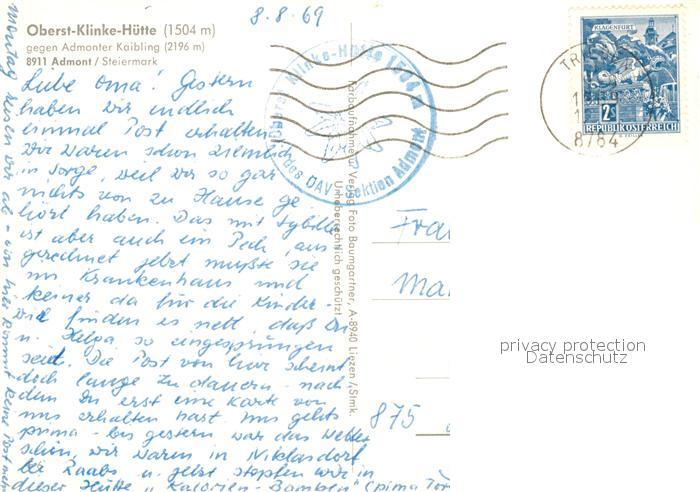 8.8.69
Oberst-Klinke-Hütte (1504 m)
gegen Admonter Kaibling (2196 m)
8911 Admont / Steiermark
Liebe Oma! Gestern
haben wir endlich
einmal Post erhalten
Wir waren schon ziemlich
in Sorge, weil wir so gar
nichts von zu Hause ge
hört haben. Das mit Sybille
ist aber auch ein Pech, aus
gerechnet jetzt mußte sie
ins Krankenhaus und
keiner da für die Kinder.
Wir finden es nett, daß Du
u. Helga so eingesprungen
seid. Die Post von hier scheint
doch lange zu dauern - nach
dem Du erst eine Karte von
uns erhalten hast. Uns gehts
prima - bis gestern war das Wetter
schön, wir waren in Niklasdorf
bei Raabs u. jetzt stopfen wir in
dieser Hütte "Kalorien-Bomben" (prima Tor
Montag reisen wir ab - von hier kommt keine Post mehr
Oberst Klinke-Hütte 1504 m
des ÖAV Sektion Admont
Farbaufnahme u. Verlag Foto Baumgartner, A-8940 Liezen /Stmk.
Urheberrechtlich geschützt!
KLAGENFURT
2 S
REPUBLIK ÖSTERREICH
8784
Frau
Ma
875
privacy protection
Datenschutz